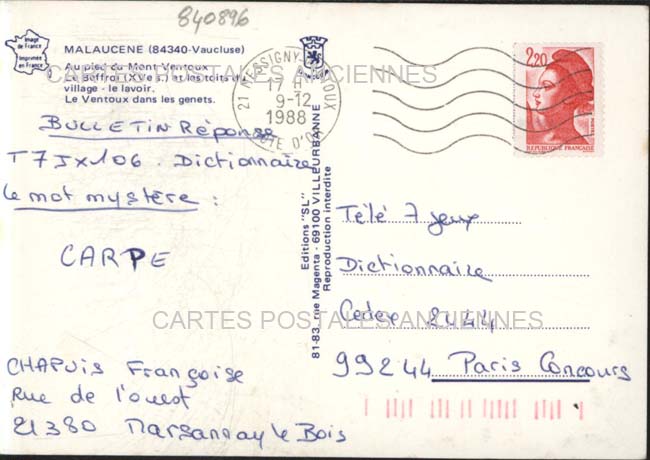 840896
Image
de France
Imprimée
en France
MALAUCENE (84340-Vaucluse)
Au pied du Mont Ventoux
Le Beffroi (XVe s.) - Les toits du
village - le lavoir.
Le Ventoux dans les genets.
21 MESSIGNY-
17 H
9-12
1988
COTE D'OR
2,20
REPUBLIQUE FRANÇAISE
CARTES POSTALES ANCIENNES
BULLETIN Réponse
T7Jx106. Dictionnaire
Le mot mystère :
CARPE
CHAPUIS Françoise
Rue de l'ouest
21380 Marsannay le Bois
Editions "SL"
81-83, rue Magenta - 69100 VILLEURBANNE
Reproduction interdite
Télé 7 jeux
Dictionnaire
Cedex 2444
99244 Paris Concours
CARTES POSTALES ANCIENNES